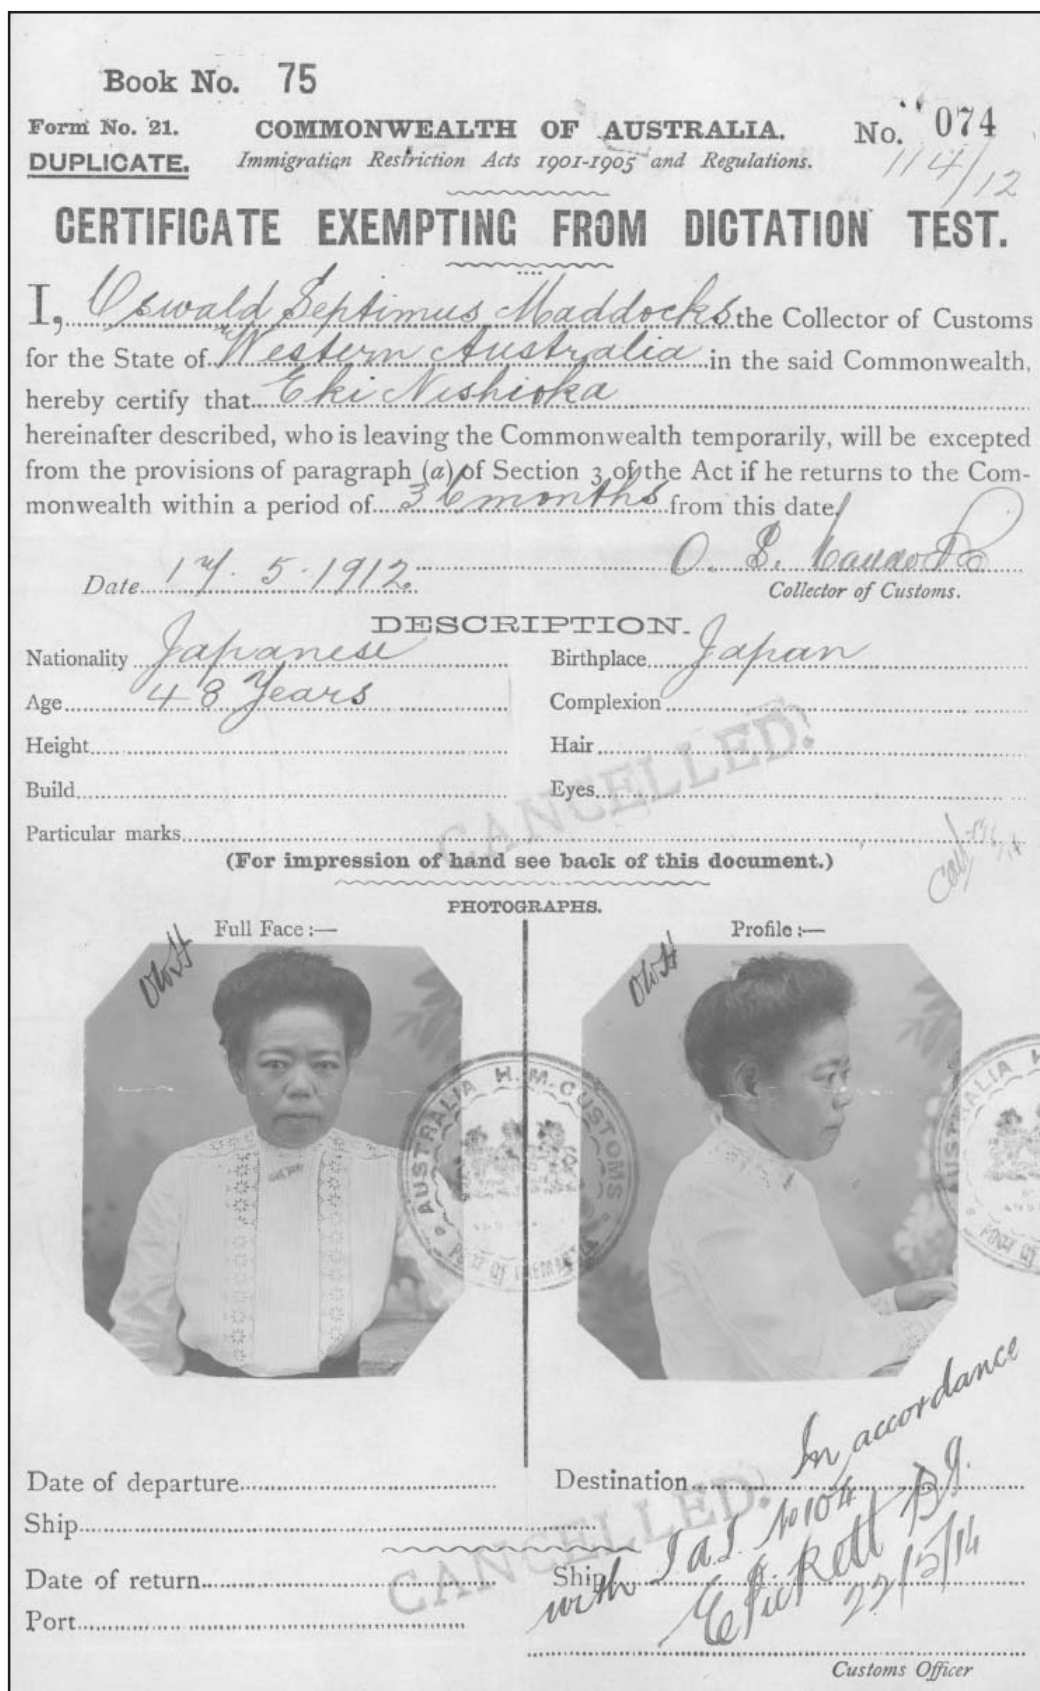 Book No. 75
Form No. 21.
COMMONWEALTH OF AUSTRALIA.
No. 074
DUPLICATE.
Immigration Restriction Acts 1901-1905 and Regulations.
114/12
CERTIFICATE EXEMPTING FROM DICTATION TEST.
I, Oswald Septimus Maddocks the Collector of Customs
for the State of Western Australia in the said Commonwealth,
hereby certify that Eki Nishioka
hereinafter described, who is leaving the Commonwealth temporarily, will be excepted
from the provisions of paragraph (a) of Section 3 of the Act if he returns to the Com-
monwealth within a period of 36 months from this date.
Date 17.5.1912.
O. S. Maddocks
Collector of Customs.
DESCRIPTION.
Nationality Japanese Birthplace Japan
Age 48 Years Complexion
Height Hair
Build Eyes
CANCELLED!
Particular marks
(For impression of hand see back of this document.)
PHOTOGRAPHS.
Full Face :— Profile :—
AUSTRALIA H.M. CUSTOMS
PORT OF FREMANTLE
AUSTRALIA H
PORT OF
Date of departure Destination
Ship
CANCELLED!
Date of return Ship
Port
In accordance
with No 104
22/5/14
Customs Officer